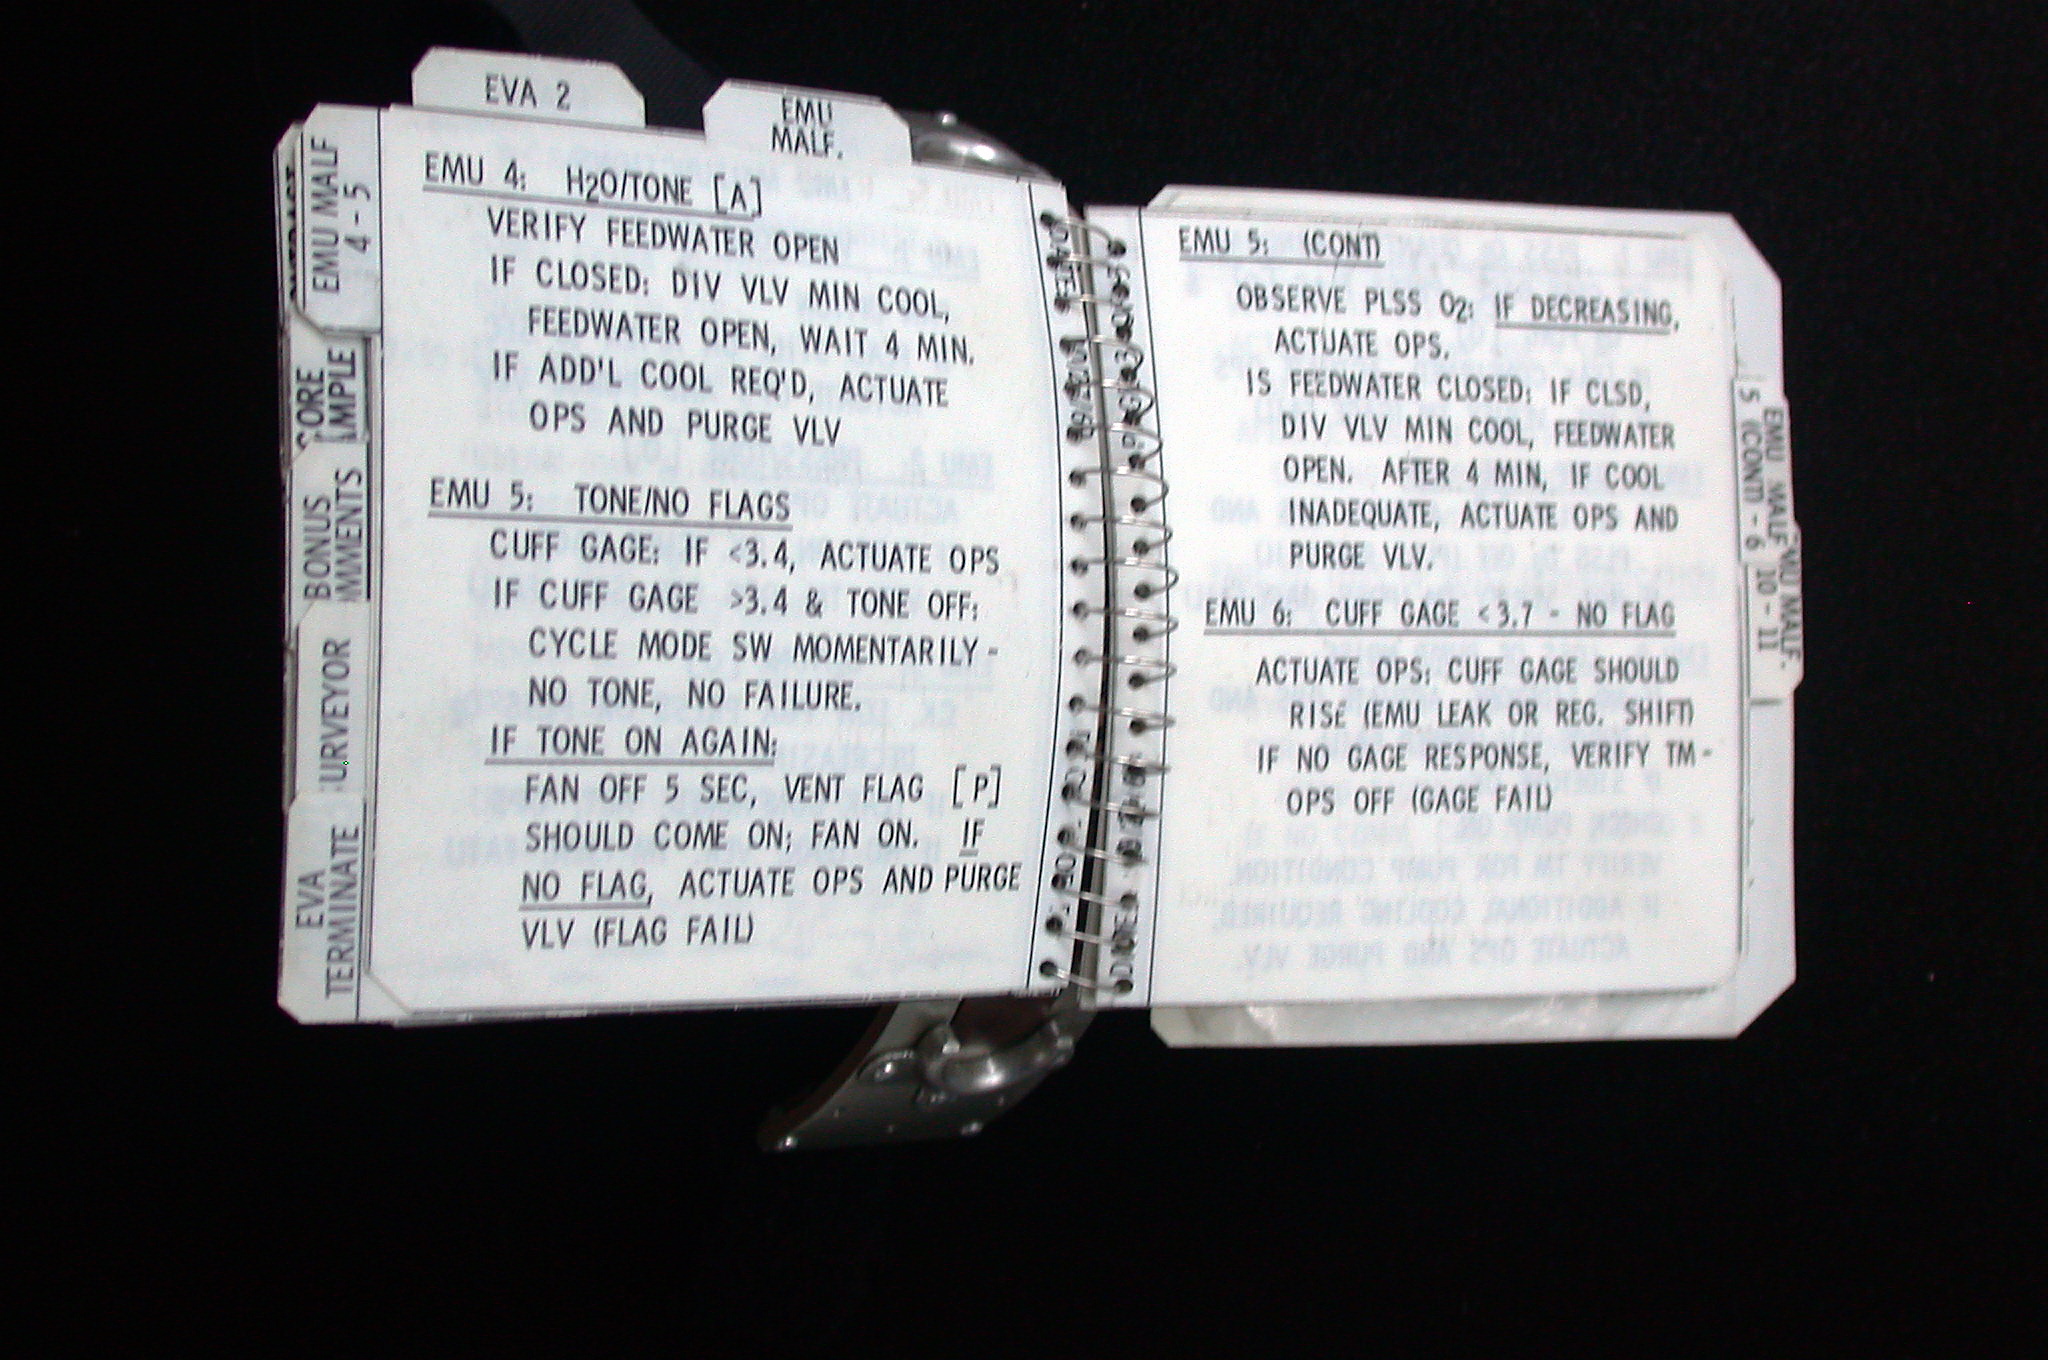 EVA 2
EMU
MALF.
EMU MALF
4 - 5
BONUS
SURVEYOR
EVA
TERMINATE
EMU 4: H2O/TONE [A]
VERIFY FEEDWATER OPEN
IF CLOSED: DIV VLV MIN COOL,
FEEDWATER OPEN, WAIT 4 MIN.
IF ADD'L COOL REQ'D, ACTUATE
OPS AND PURGE VLV
EMU 5: TONE/NO FLAGS
CUFF GAGE: IF <3.4, ACTUATE OPS
IF CUFF GAGE >3.4 & TONE OFF:
CYCLE MODE SW MOMENTARILY -
NO TONE, NO FAILURE.
IF TONE ON AGAIN:
FAN OFF 5 SEC, VENT FLAG [P]
SHOULD COME ON; FAN ON. IF
NO FLAG, ACTUATE OPS AND PURGE
VLV (FLAG FAIL)
EMU 5: (CONT)
OBSERVE PLSS O2: IF DECREASING,
ACTUATE OPS.
IS FEEDWATER CLOSED: IF CLSD,
DIV VLV MIN COOL, FEEDWATER
OPEN. AFTER 4 MIN, IF COOL
INADEQUATE, ACTUATE OPS AND
PURGE VLV.
EMU 6: CUFF GAGE <3.7 - NO FLAG
ACTUATE OPS: CUFF GAGE SHOULD
RISE (EMU LEAK OR REG. SHIFT)
IF NO GAGE RESPONSE, VERIFY TM -
OPS OFF (GAGE FAIL)
EMU MALF
5 (CONT) - 6
EMU MALF.
10 - 11